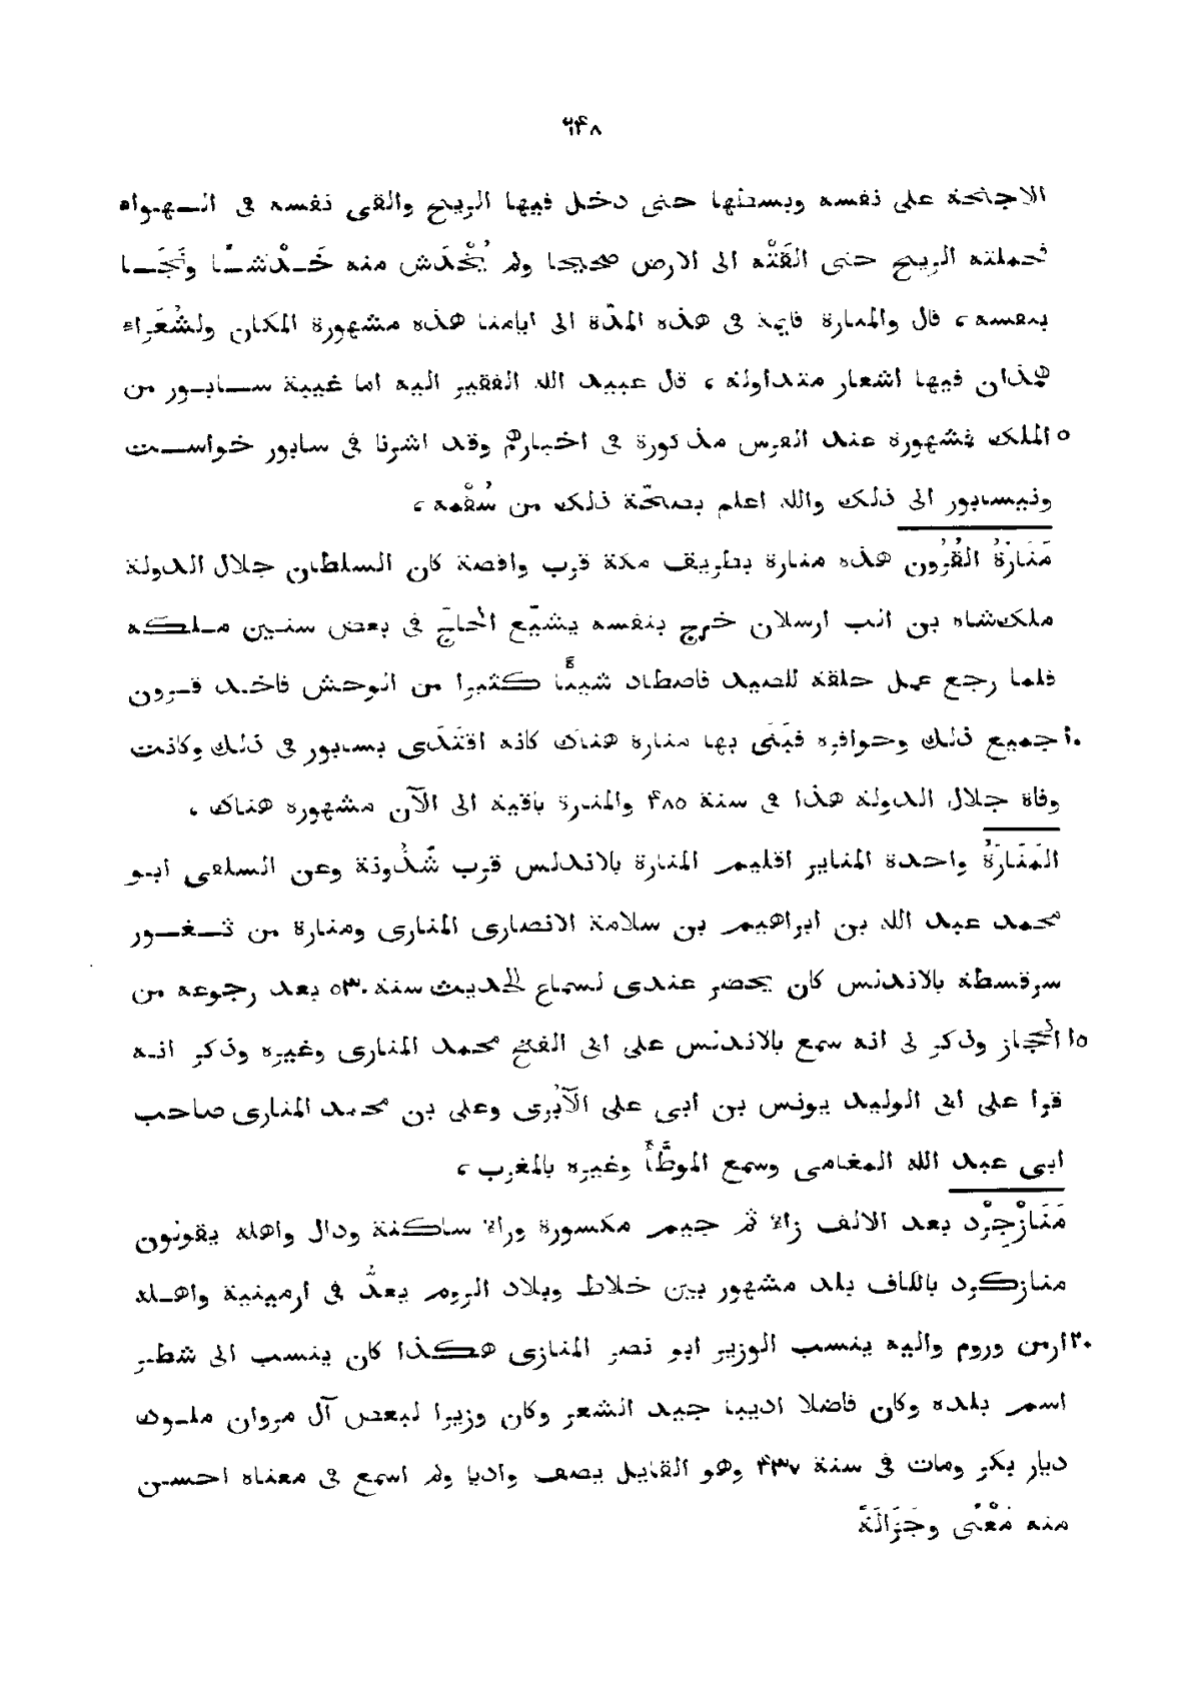 ٦۴٨
الاجنحة على نفسه وبسطها حتى دخل فيها الريح والقى نفسه فى الـهـواء
فحملته الريح حتى القَتْه الى الارض صحيحا ولم يُخْدَش منه خَـدْشـًا ونَجَـا
بنفسه ، قال والمنارة قايمة فى هذه المدّة الى ايامنا هذه مشهورة المكان ولشُعَراء
همذان فيها اشعار متداولة ، قل عبيد الله الفقير اليه اما غيبة سـابـور من
٥ الملك فمشهورة عند الفرس مذكورة فى اخبارهم وقد اشرنا فى سابور خواسـت
ونيسابور الى ذلك والله اعلم بصحّة ذلك من سُقْمه ،
مَنَارَةُ القُرُون هذه منارة بطريق مكة قرب واقصة كان السلطان جلال الدولة
ملكشاه بن الب ارسلان خرج بنفسه يشيّع الحاجّ فى بعض سنـين مـلـكـه
فلما رجع عمل حلقة للصيد فاصطاد شيئًا كثيرا من الوحش فاخـذ قـرون
١٠ جميع ذلك وحوافره فبَنَى بها منارة هناك كانه اقتَدَى بسابور فى ذلك وكانت
وفاة جلال الدولة هذا فى سنة ۴٨٥ والمنارة باقية الى الآن مشهورة هناك ،
المَنَارَةُ واحدة المناير اقليم المنارة بالاندلس قرب شَذُونة وعن السلفى ابـو
محمد عبد الله بن ابراهيم بن سلامة الانصارى المنارى ومنارة من ثـغـور
سرقسطة بالاندلس كان يحضر عندى لسماع الحديث سنة ٥٣٠ بعد رجوعه من
١٥ الحجاز وذكر لى انه سمع بالاندلس على ابى الفتح محمد المنارى وغيره وذكر انـه
قرا على ابى الوليد يونس بن ابى على الآبُرى وعلى بن محمد المنارى صاحب
ابى عبد الله المغامى وسمع الموطَّأَ وغيره بالمغرب ،
مَنَازْجِرْد بعد الالف زالا ثم جيم مكسورة ورالا ساكنة ودال واهله يقولون
منازكرد بالكاف بلد مشهور بين خلاط وبلاد الروم يعدُّ فى ارمينية واهـله
٢٠ ارمن وروم واليه ينسب الوزير ابو نصر المنازى هكذا كان ينسب الى شطر
اسم بلده وكان فاضلا اديبا جيد الشعر وكان وزيرا لبعض آل مروان ملـوك
ديار بكر ومات فى سنة ۴٣٧ وهو القايل يصف واديا ولم اسمع فى معناه احسـن
منه مَعْنًى وجَزَالَةً